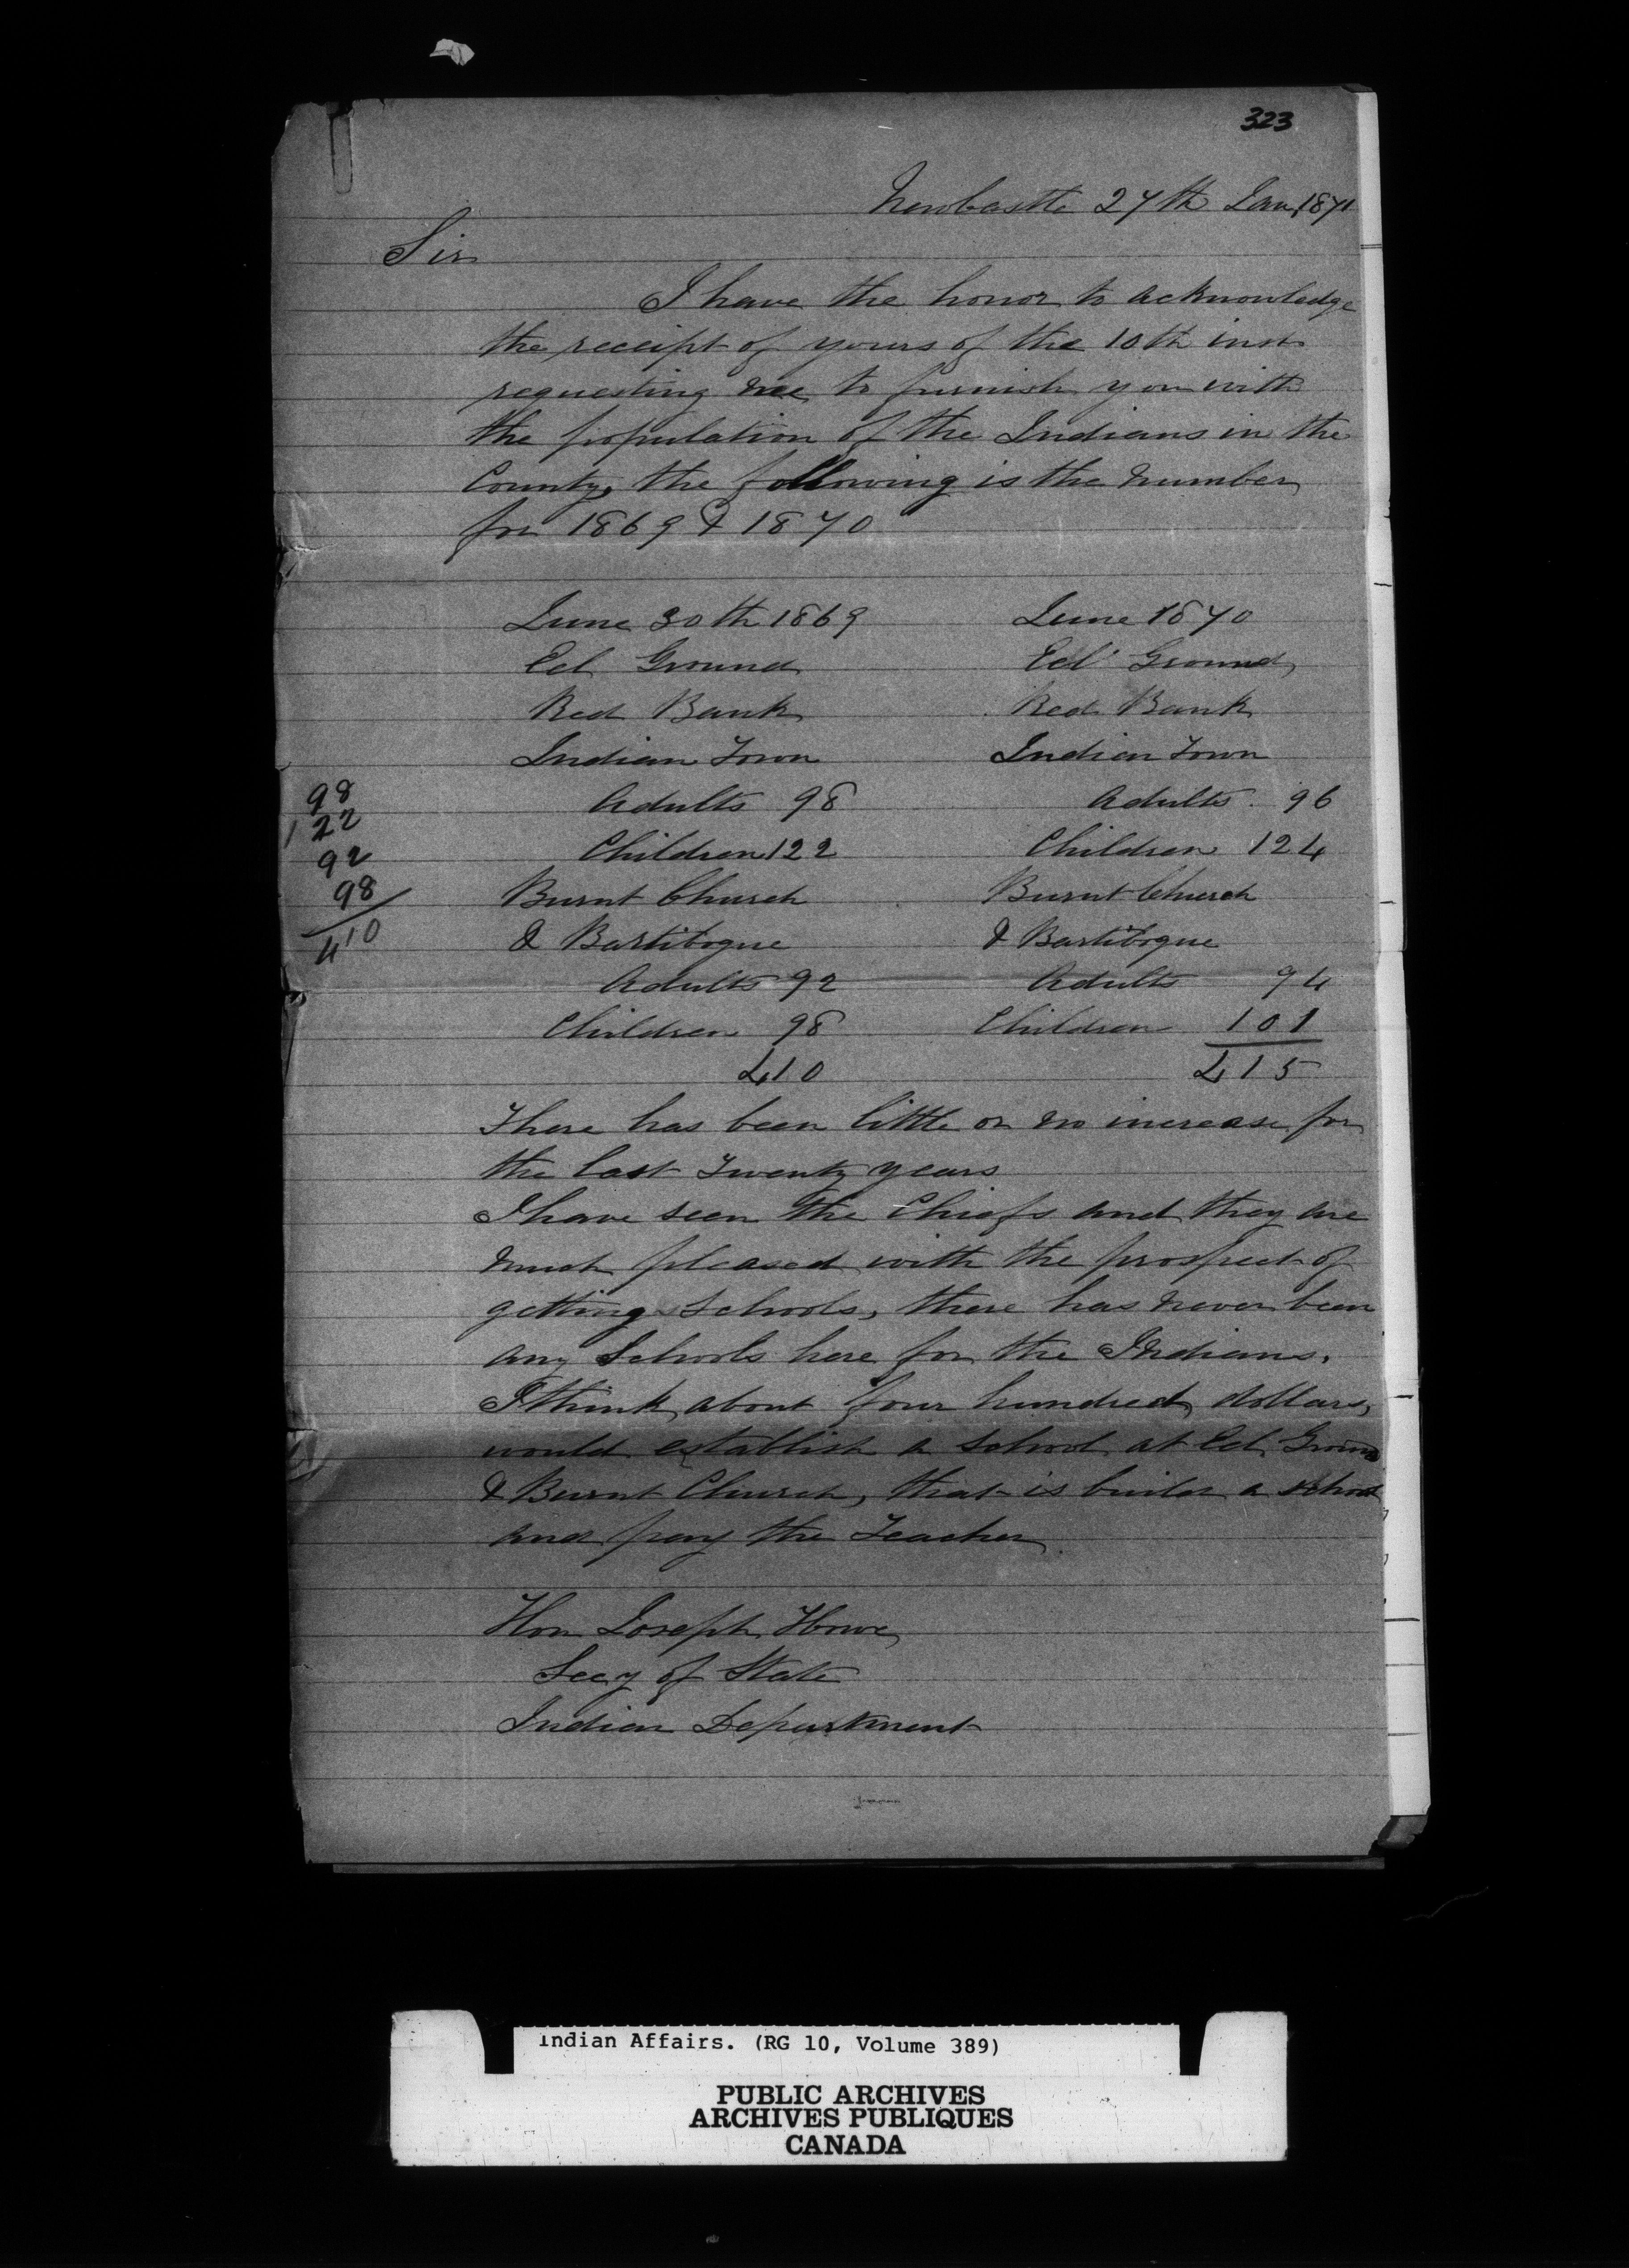 323
Newcastle 27th Jan, 1871
Sir
I have the honor to acknowledge
the receipt of yours of the 10th inst
requesting me to furnish you with
the population of the Indians in the
County, the following is the number
for 1869 & 1870
June 30th 1869 June 1870
Eel Ground Eel Ground
Red Bank Red Bank
Indian Town Indian Town
98 Adults 98 Adults 96
122 Children 122 Children 124
92
98 Burnt Church Burnt Church
410 & Bartibogue & Bartibogue
Adults 92 Adults 94
Children 98 Children 101
410 415
There has been little or no increase for
the last Twenty years
I have seen the Chiefs and they are
much pleased with the prospect of
getting Schools, there has never been
any Schools here for the Indians.
I think about four hundred dollars,
would establish a school at Eel Ground
& Burnt Church, that is build a school
and pay the Teacher
Hon Joseph Howe
Secy of State
Indian Department
Indian Affairs. (RG 10, Volume 389)
PUBLIC ARCHIVES
ARCHIVES PUBLIQUES
CANADA